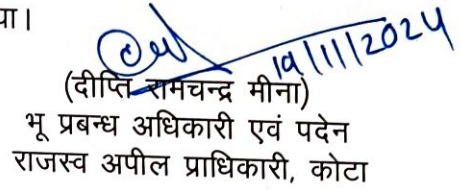 या।
19/11/2024
(दीप्ति रामचन्द्र मीना)
भू प्रबन्ध अधिकारी एवं पदेन
राजस्व अपील प्राधिकारी, कोटा